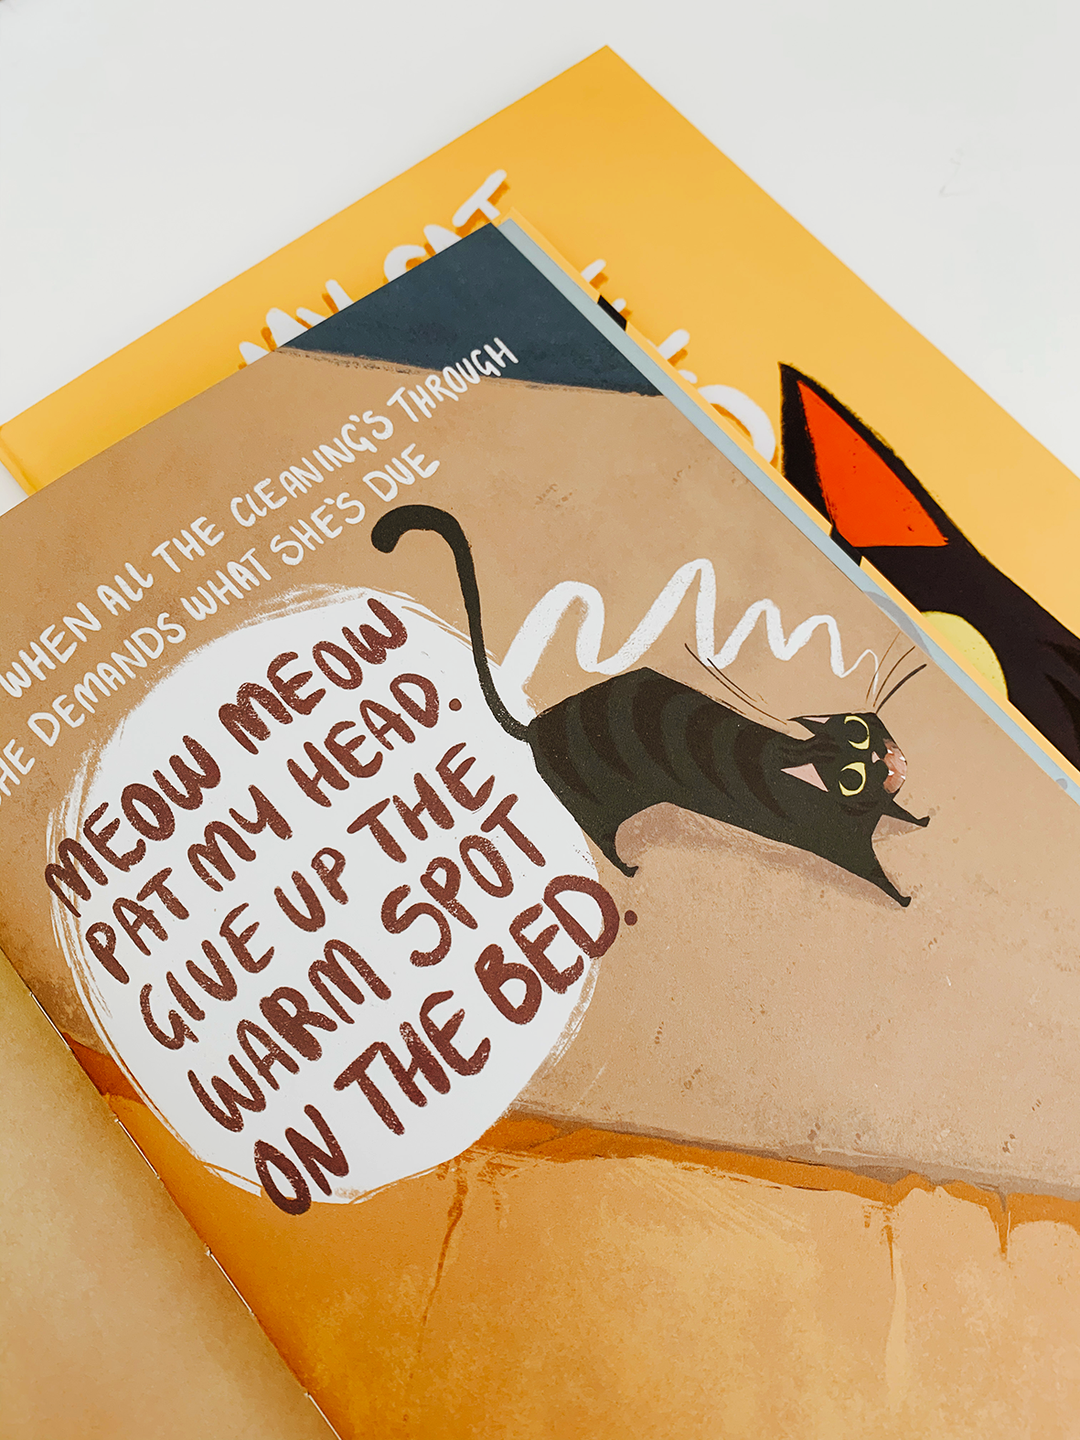 CAT
WHEN ALL THE CLEANING'S THROUGH
DEMANDS WHAT SHE'S DUE
MEOW MEOW
PAT MY HEAD.
GIVE UP THE
WARM SPOT
ON THE BED.